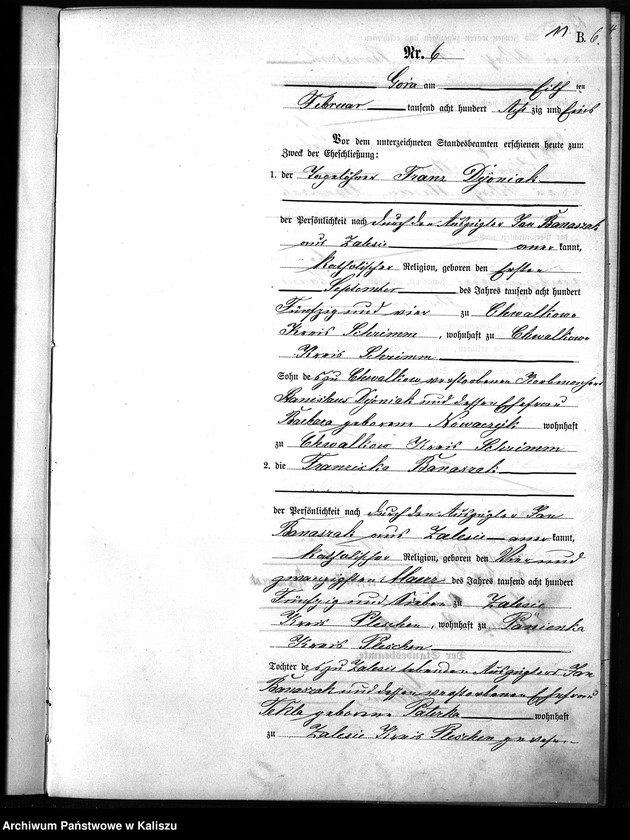 11 B. 6.
Nr. 6
Góra am Eilf ten
Februar tausend acht hundert Acht zig und Eins
Vor dem unterzeichneten Standesbeamten erschienen heute zum
Zweck der Eheschließung:
1. der Tagelöhner Franz Dÿoniak
der Persönlichkeit nach durch den Auszügler Jan Banaszak
aus Zalesie aner kannt,
katholischer Religion, geboren den Ersten
September des Jahres tausend acht hundert
Fünfzig und vier zu Chwalkowo
Kreis Schrimm, wohnhaft zu Chwalkowo
Kreis Schrimm
Sohn des zu Chwalkowo verstorbenen
Stanislaus Dÿoniak und dessen Ehefrau
Barbara geborene Nowaczÿk wohnhaft
zu Chwalkow Kreis Schrimm
2. die Franziska Banaszak
der Persönlichkeit nach durch den Auszügler Jan
Banaszak aus Zalesie aner kannt,
katholischer Religion, geboren den Vier und
zwanzigsten Maerz des Jahres tausend acht hundert
Fünfzig und Sieben zu Zalesie
Kreis Pleschen, wohnhaft zu Panienka
Kreis Pleschen
Tochter des zu Zalesie lebenden Auszüglers Jan
Banaszak und dessen verstorbenen Ehefrau
Tekla geborene Paterka wohnhaft
zu Zalesie Kreis Pleschen gewesen
Archiwum Państwowe w Kaliszu